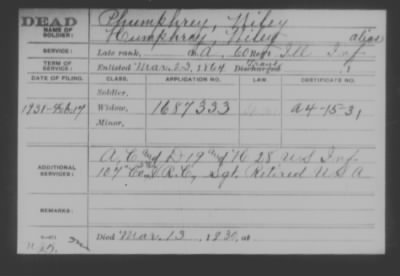 DEAD
NAME OF SOLDIER:
Phumphrey, Wiley
Humphrey, Wiley alias
SERVICE:
Late rank, Co. A, 60 Reg't Ill Inf
TERM OF SERVICE:
Enlisted Mar. 23, 1864 Discharged
DATE OF FILING. CLASS. APPLICATION NO. LAW. CERTIFICATE NO.
Soldier,
1931-Feb.17 Widow, 1687333 A4-15-31
Minor,
ADDITIONAL SERVICES:
A, C and D 19 and H 28 U.S. Inf
107" Co. C, Sgt. Retired U S A
REMARKS:
Died Mar. 13, 1930, at